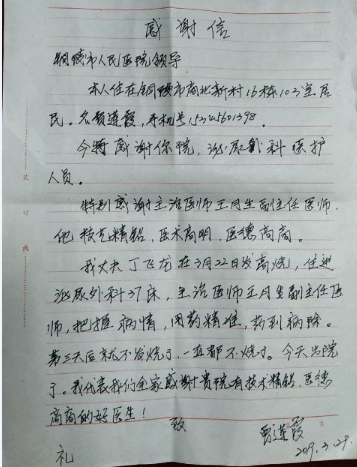 感谢信
铜陵市人民医院领导
本人住在铜陵市商业新村16栋103室居
民。名贾莲霞，手机是15345601398.
今特感谢你院，泌尿外科医护
人员。
特别感谢主治医师王月生副主任医师.
他技术精铪，医术高明，医德高高。
我丈夫丁飞龙在3月22日发高烧，住进
泌尿外科37床，主治医师王月生副主任医
师，把握病情，用药精准，药到病除。
第三天后就不发烧了，一直都不烧了。今天出院
了。我代表我们全家感谢贵院有技术精铪，医德
高高的好医生！
致
礼
贾莲霞
2019.3.29.
装订线